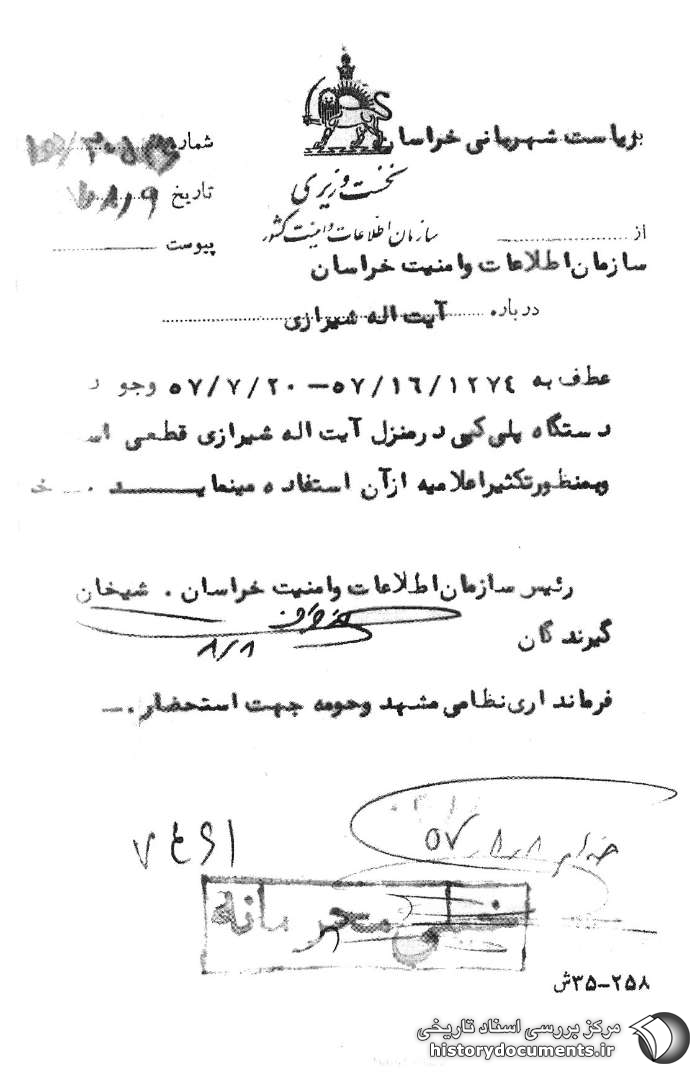 بریاست شهربانی خراسان
شماره
نخست وزیری
تاریخ
سازمان اطلاعات و امنیت کشور
پیوست
از
سازمان اطلاعات وامنیت خراسان
درباره آیت اله شیرازی
عطف به ۵۷/۷/۲۰–۵۷/۱۶/۱۲۷۴ وجو
دستگاه پلی‌کپی درمنزل آیت اله شیرازی قطعی
وبمنظورتکثیراعلامیه ازآن استفاده مینماید .
رئیس سازمان اطلاعات وامنیت خراسان . شیخان
۸/۸
گیرندگان
فرمانداری نظامی مشهد وحومه جهت استحضار.
۵۷
خیلی محرمانه
۳۵–۲۵۸ش
مرکز بررسی اسناد تاریخی
historydocuments.ir